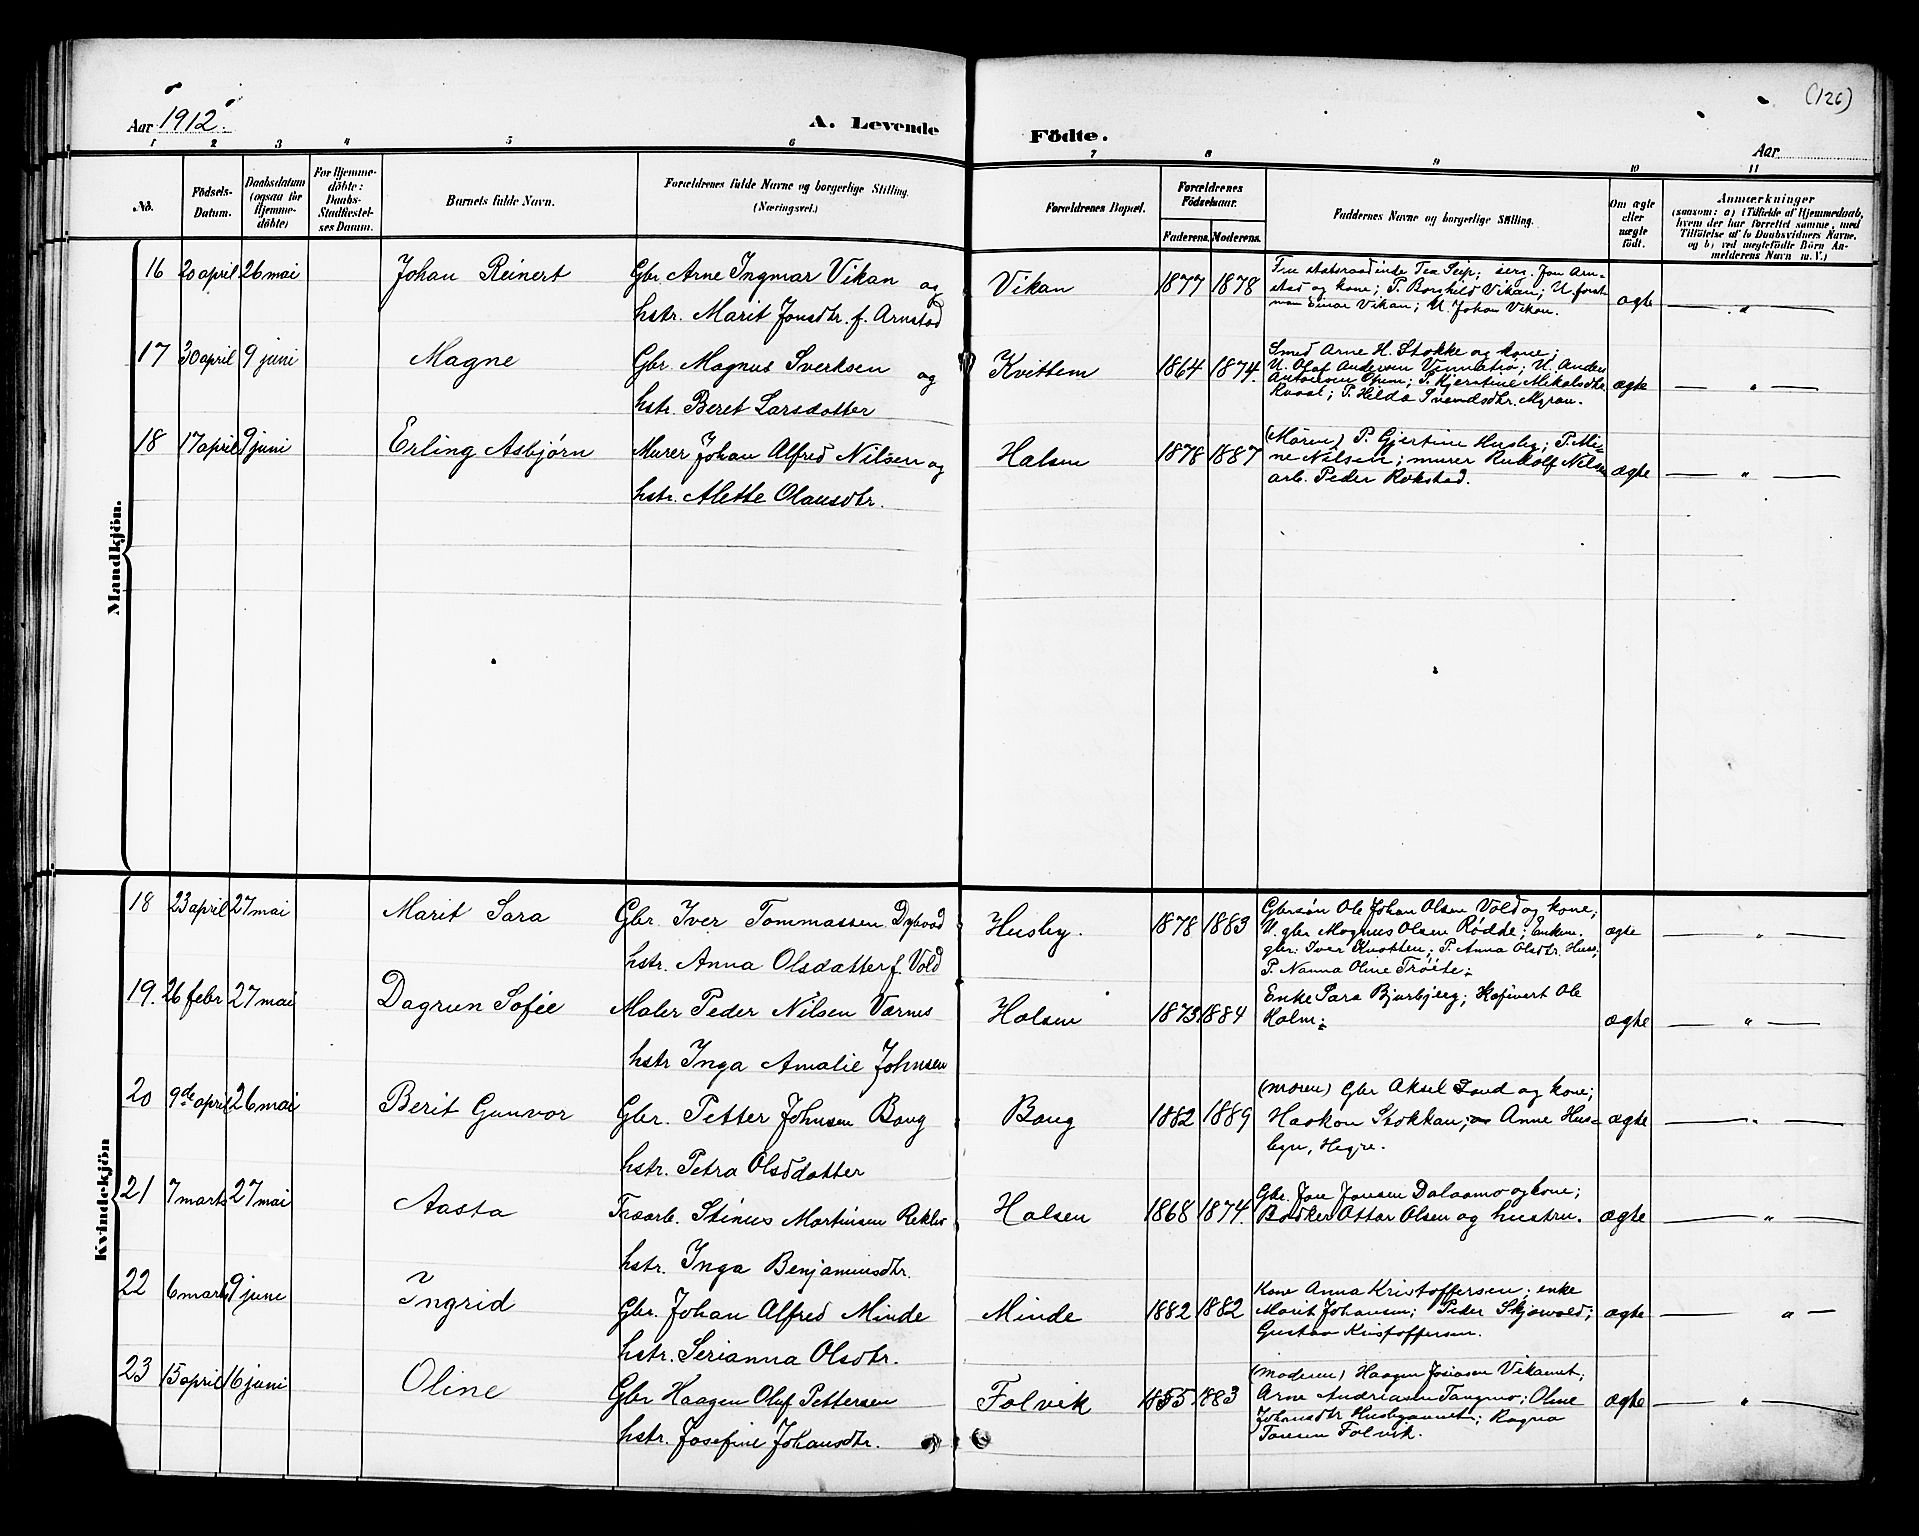 Aar 1912.
A. Levende
Födte.
(126)
Aar
1 2 3 4 5 6 7 8 9 10 11
No.
Födsels-
Datum.
Daabsdatum
(ogsaa for
Hjemme-
döbte)
For Hjemme-
döbte:
Daabs-
Stadfæstel-
ses Datum.
Barnets fulde Navn.
Forældrenes fulde Navne og borgerlige Stilling.
(Næringsvei.)
Forældrenes Bopæl.
Forældrenes
Födselsaar.
Faderens. Moderens.
Faddernes Navne og borgerlige Stilling.
Om ægte
eller
uægte
födt.
Anmærkninger
(saasom: a) i Tilfælde af Hjemmedaab,
hvem der har forrettet samme, med
Tilföielse af to Daabsvidners Navne,
og b) ved uægtefödte Börn An-
melderens Navn m. V.)
Mandkjön.
16 20 april 26 mai Johan Reinert Gbr. Arne Ingmar Vikan og
hstr. Marit Jonsdtr. f. Arnstad
Vikan 1877 1878
Fru statsraadinde Tea Seip; serg. Jon Arn-
stad og kone; P. Borghild Vikan; U. forst-
man Einar Vikan; U. Johan Vikan.
ægte "
17 30 april 9 juni Magne Gbr. Magnus Sverksen og
hstr. Beret Larsdatter
Kvittem 1864 1874.
Smed Arne H. Stokke og kone;
U. Olaf Andersen; U. Anders
Antonsen; P. Kjerstine Mikalsdtr.
P. Hilda Svendsdtr. Myran.
ægte "
18 17 april 9 juni Erling Asbjørn Murer Johan Alfred Nilsen og
hstr. Alette Olausdtr.
Halsen 1878 1887
(Moren) P. Gjertine Husby; P. Mi-
ne Nilsen; murer Rudolf Nilsen
arb. Peder Rokstad.
ægte "
Kvindekjön
18 23 april 27 mai Marit Sara Gbr. Iver Tommassen Dybvad
hstr. Anna Olsdatter f. Vold
Husby. 1878 1883
Gbrsøn Ole Johan Olsen Vold og kone;
U. gbr Magnus Olsen Rødde; Enkem.
gbr. Iver Knotten; P. Anna Olsdtr. Hus;
P. Nanna Oline Trøite;
ægte "
19. 26 febr 27 mai Dagrun Sofie Maler Peder Nilsen Værnes
hstr Inga Amalie Johnsen
Halsen 1873 1884
Enke Sara Bjørbjerg; Ole
Holm;
ægte "
20 9de april 26 mai Berit Gunvor Gbr. Petter Johnsen Baug
hstr. Petra Olsdatter
Baug 1882 1889
(moren) Gbr Aksel og kone;
Haakon Stokkan; Anne Hus-
byn, Hegre.
ægte "
21 7 marts 27 mai Aasta Stinus Martinsen
hstr. Inga Benjaminsdtr.
Halsen 1868 1874.
Gbr. Jon Jonsen Dalaamo og kone;
Bødker Ottar Olsen og hustru.
ægte "
22 6 marts 9 juni Ingrid Gbr. Johan Alfred Minde
hstr. Serianna Olsdtr.
Minde 1882 1882
Kone Anna Kristoffersen; enke
Marit Johansen; Peder Skjøvold;
Gustav Kristoffersen.
ægte "
23 15 april 16 juni Oline Gbr Haagen Oluf Pettersen
hstr. Josefine Johansdtr.
Folvik 1855 1883
(moderen) Haagen Vikamet;
Arne Andreasen Tangmo; Oline
Johansdtr Husbyaunet; Ragna
Folvik.
ægte "